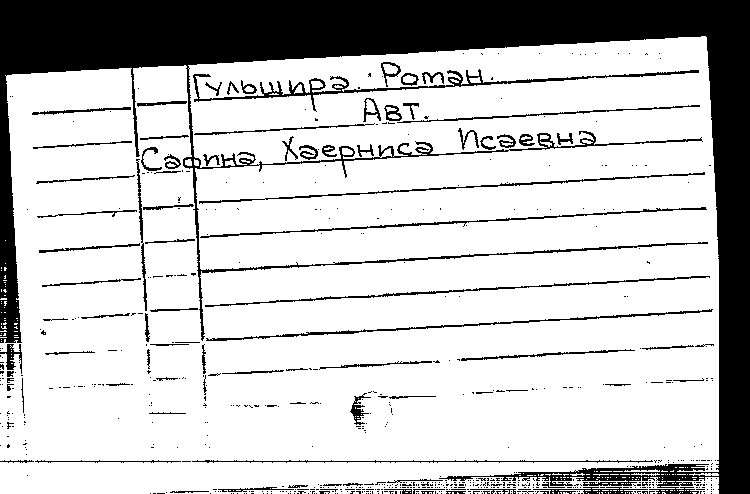 Гульшира. Роман.
Авт.
Сафина, Хаерниса Исаевна